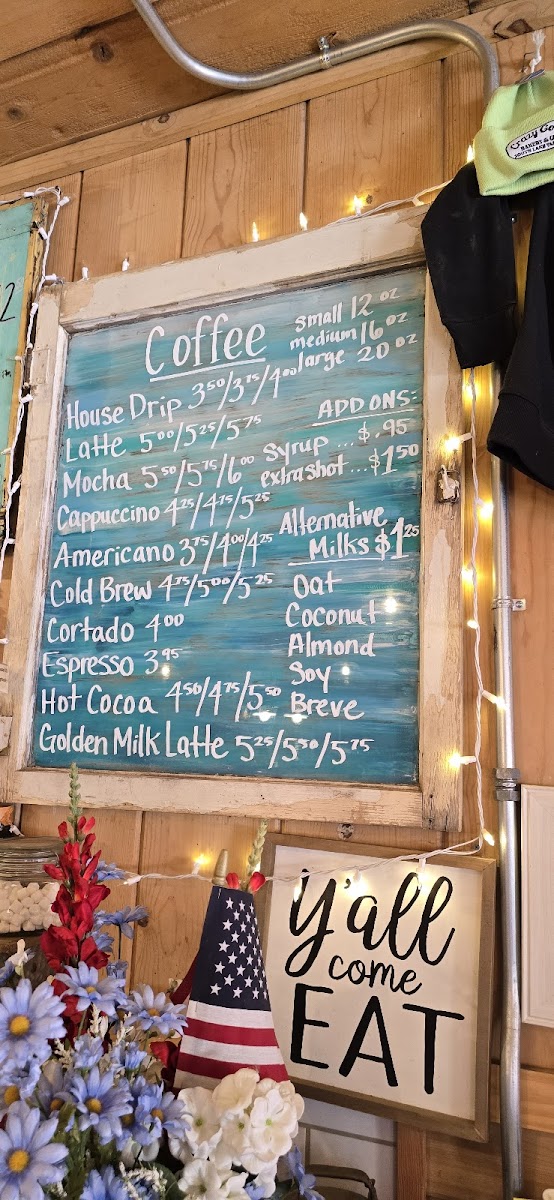 Coffee
small 12 oz
medium 16 oz
large 20 oz
House Drip 3⁵⁰/3⁷⁵/4⁰⁰
Latte 5⁰⁰/5²⁵/5⁷⁵
Mocha 5⁵⁰/5⁷⁵/6⁰⁰
Cappuccino 4²⁵/4⁷⁵/5²⁵
Americano 3⁷⁵/4⁰⁰/4²⁵
Cold Brew 4⁷⁵/5⁰⁰/5²⁵
Cortado 4⁰⁰
Espresso 3⁹⁵
Hot Cocoa 4⁵⁰/4⁷⁵/5⁵⁰
Golden Milk Latte 5²⁵/5⁵⁰/5⁷⁵
ADD ONS:
Syrup ... $.95
extra shot ... $1⁵⁰
Alternative
Milks $1²⁵
Oat
Coconut
Almond
Soy
Breve
Crazy
BAKERY &
SOUTH LAKE
2
y'all
come
EAT